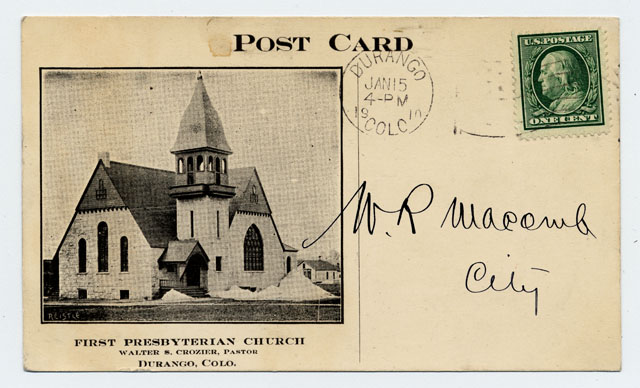 POST CARD
DURANGO
JAN 15
4-PM
1910
COLO.
U.S. POSTAGE
ONE CENT
W. R Macomb
City
REISTLE
FIRST PRESBYTERIAN CHURCH
WALTER S. CROZIER, PASTOR
DURANGO, COLO.